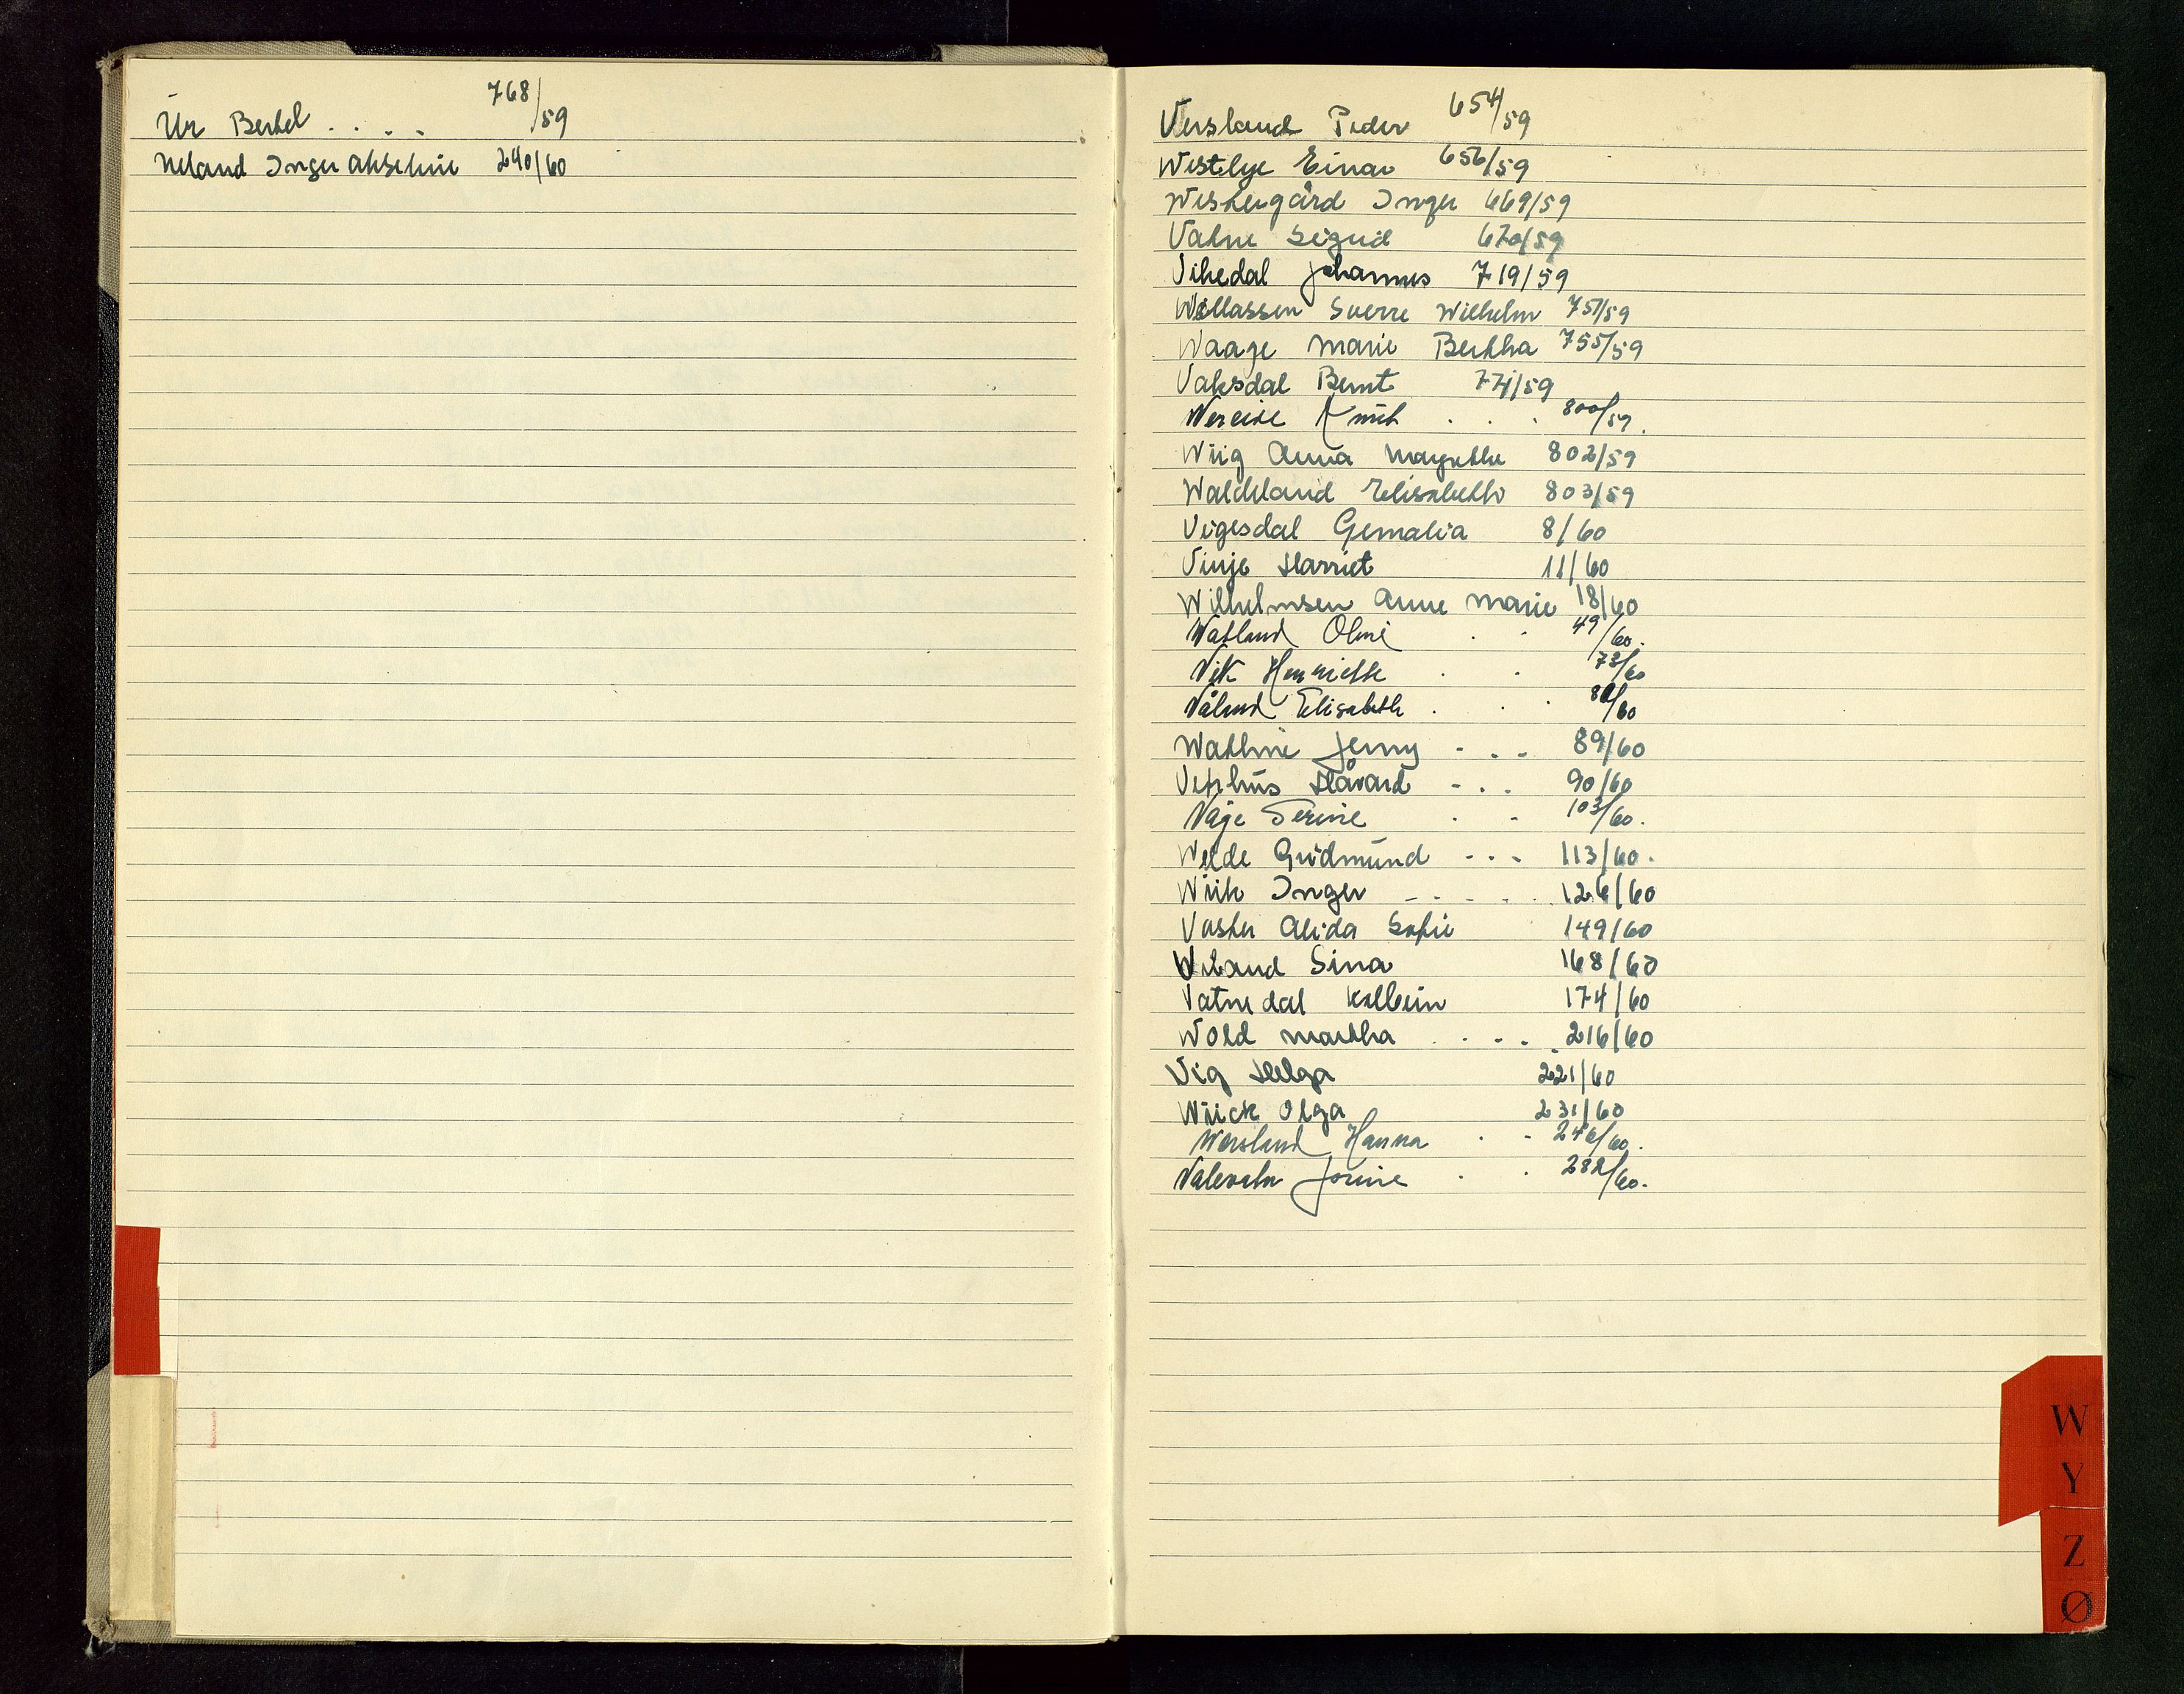 Ur Bertel . . . . 768/59
Ueland Inger Akseline 240/60
Versland Peder 654/59
Westlye Einar 656/59
Westergård Inger 669/59
Vatne Sigrid 670/59
Vikedal Johannes 719/59
Willassen Sverre Wilhelm 751/59
Waage Marie Berthha 755/59
Vaksdal Bernt 771/59
800/59.
Wiig Anna Margrethe 802/59
Waldeland Elisabeth 803/59
Vigesdal Gemalia 8/60
Vinje Harriet 11/60
Wilhelmsen Anne Marie 18/60
Watland Oline . . 49/60.
Vik Henriette . . 73/60
Våland Elisabeth . . . /60
Wathne Jenny - . . 89/60
Vetrhus Håvard - . . 90/60
Våge Serine . . 103/60.
Welde Gudmund - - - 113/60.
Wiik Inger - - . . . 126/60
Vaster Alida Sofie 149/60
Veland Sina 168/60
Vatnedal Kolbein 174/60
Wold Martha . . . . 216/60
Vig Helga 221/60
Wiick Olga 231/60
Wersland Hanna . - 246/60.
Valevatn Jorine . . 282/60.
W
Y
Z
Ø